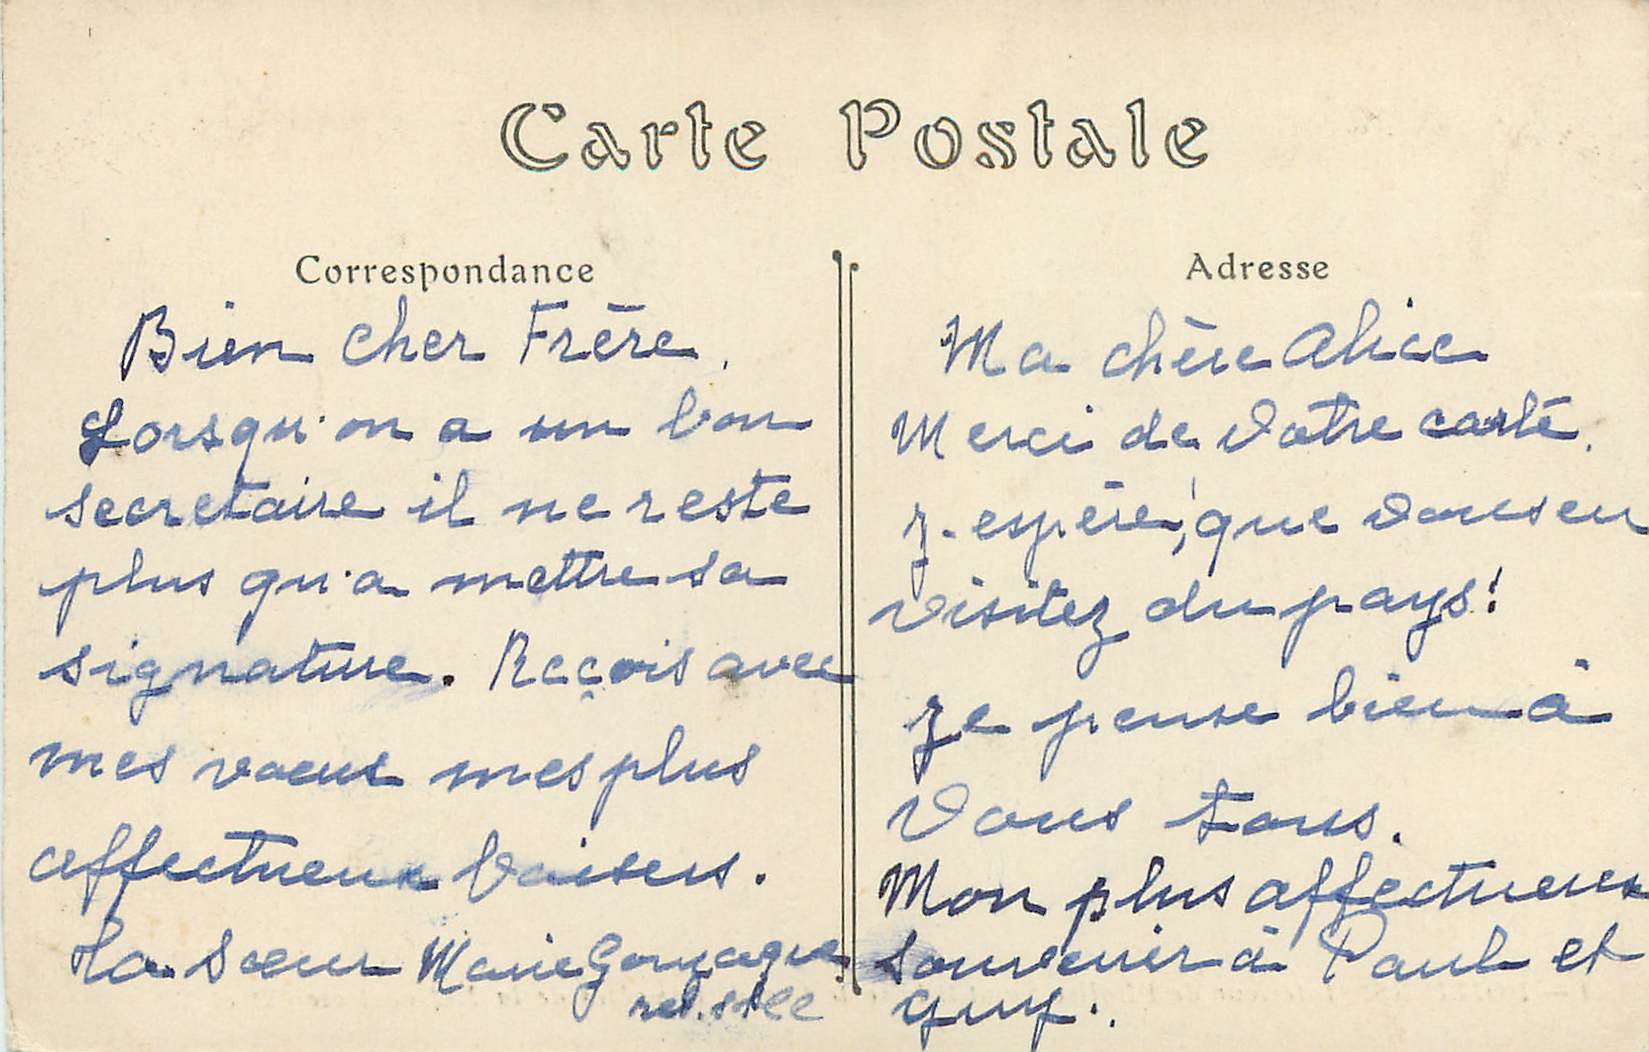 Carte Postale
Correspondance
Bien cher Frère,
Lorsqu'on a un bon
secretaire il ne reste
plus qu'a mettre sa
signature. Reçois avec
mes vœux mes plus
affectueux baisers.
Ta Sœur Marie Gonzague
Adresse
Ma chère Alice
Merci de votre carte.
J'espère, que vous en
visitez du pays!
Je pense bien à
Vous tous.
Mon plus affectueux
souvenir à Paul et
guy.